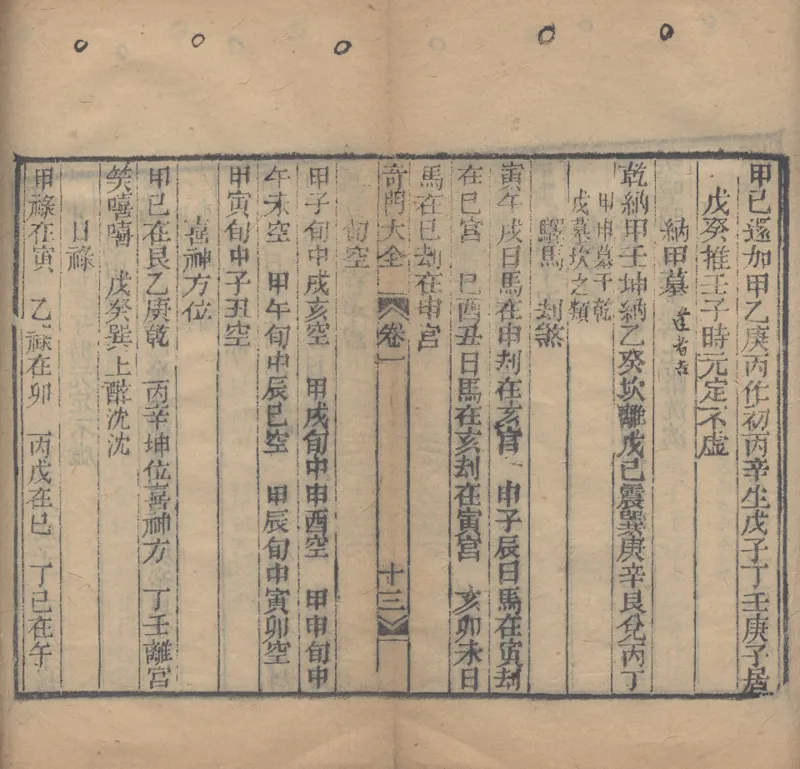 甲己還加甲乙庚丙作初丙辛生戊子丁壬庚子居
戊癸推壬子時元定不虛
納甲墓
乾納甲壬坤納乙癸坎離戊己震巽庚辛艮兌丙丁
甲申墓干乾
戊墓坎之類
驛馬 刦煞
寅午戌日馬在申刦在亥宫 申子辰日馬在寅刦
在巳宫 巳酉丑日馬在亥刦在寅宫 亥卯未日
馬在巳刦在申宫
奇門大全 卷一 十三
旬空
甲子旬中戌亥空 甲戌旬中申酉空 甲申旬中
午未空 甲午旬中辰巳空 甲辰旬中寅卯空
甲寅旬中子丑空
喜神方位
甲己在艮乙庚乾 丙辛坤位喜神方 丁壬離宫
笑嘻嘻 戊癸巽上醉沈沈
日祿
甲祿在寅 乙祿在卯 丙戊在巳 丁己在午